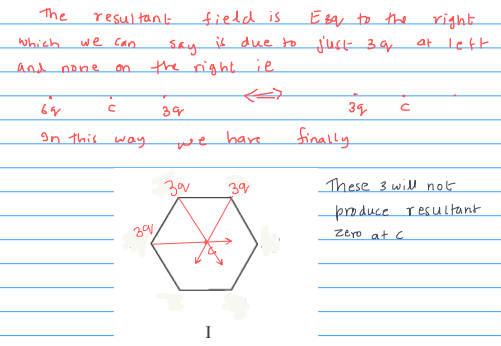 The resultant field is E3q to the right
which we can say is due to just 3q at left
and none on the right ie
6q c 3q ⟺ 3q c
In this way we have finally
3q 3q
These 3 will not
produce resultant
3q
zero at c
c
I